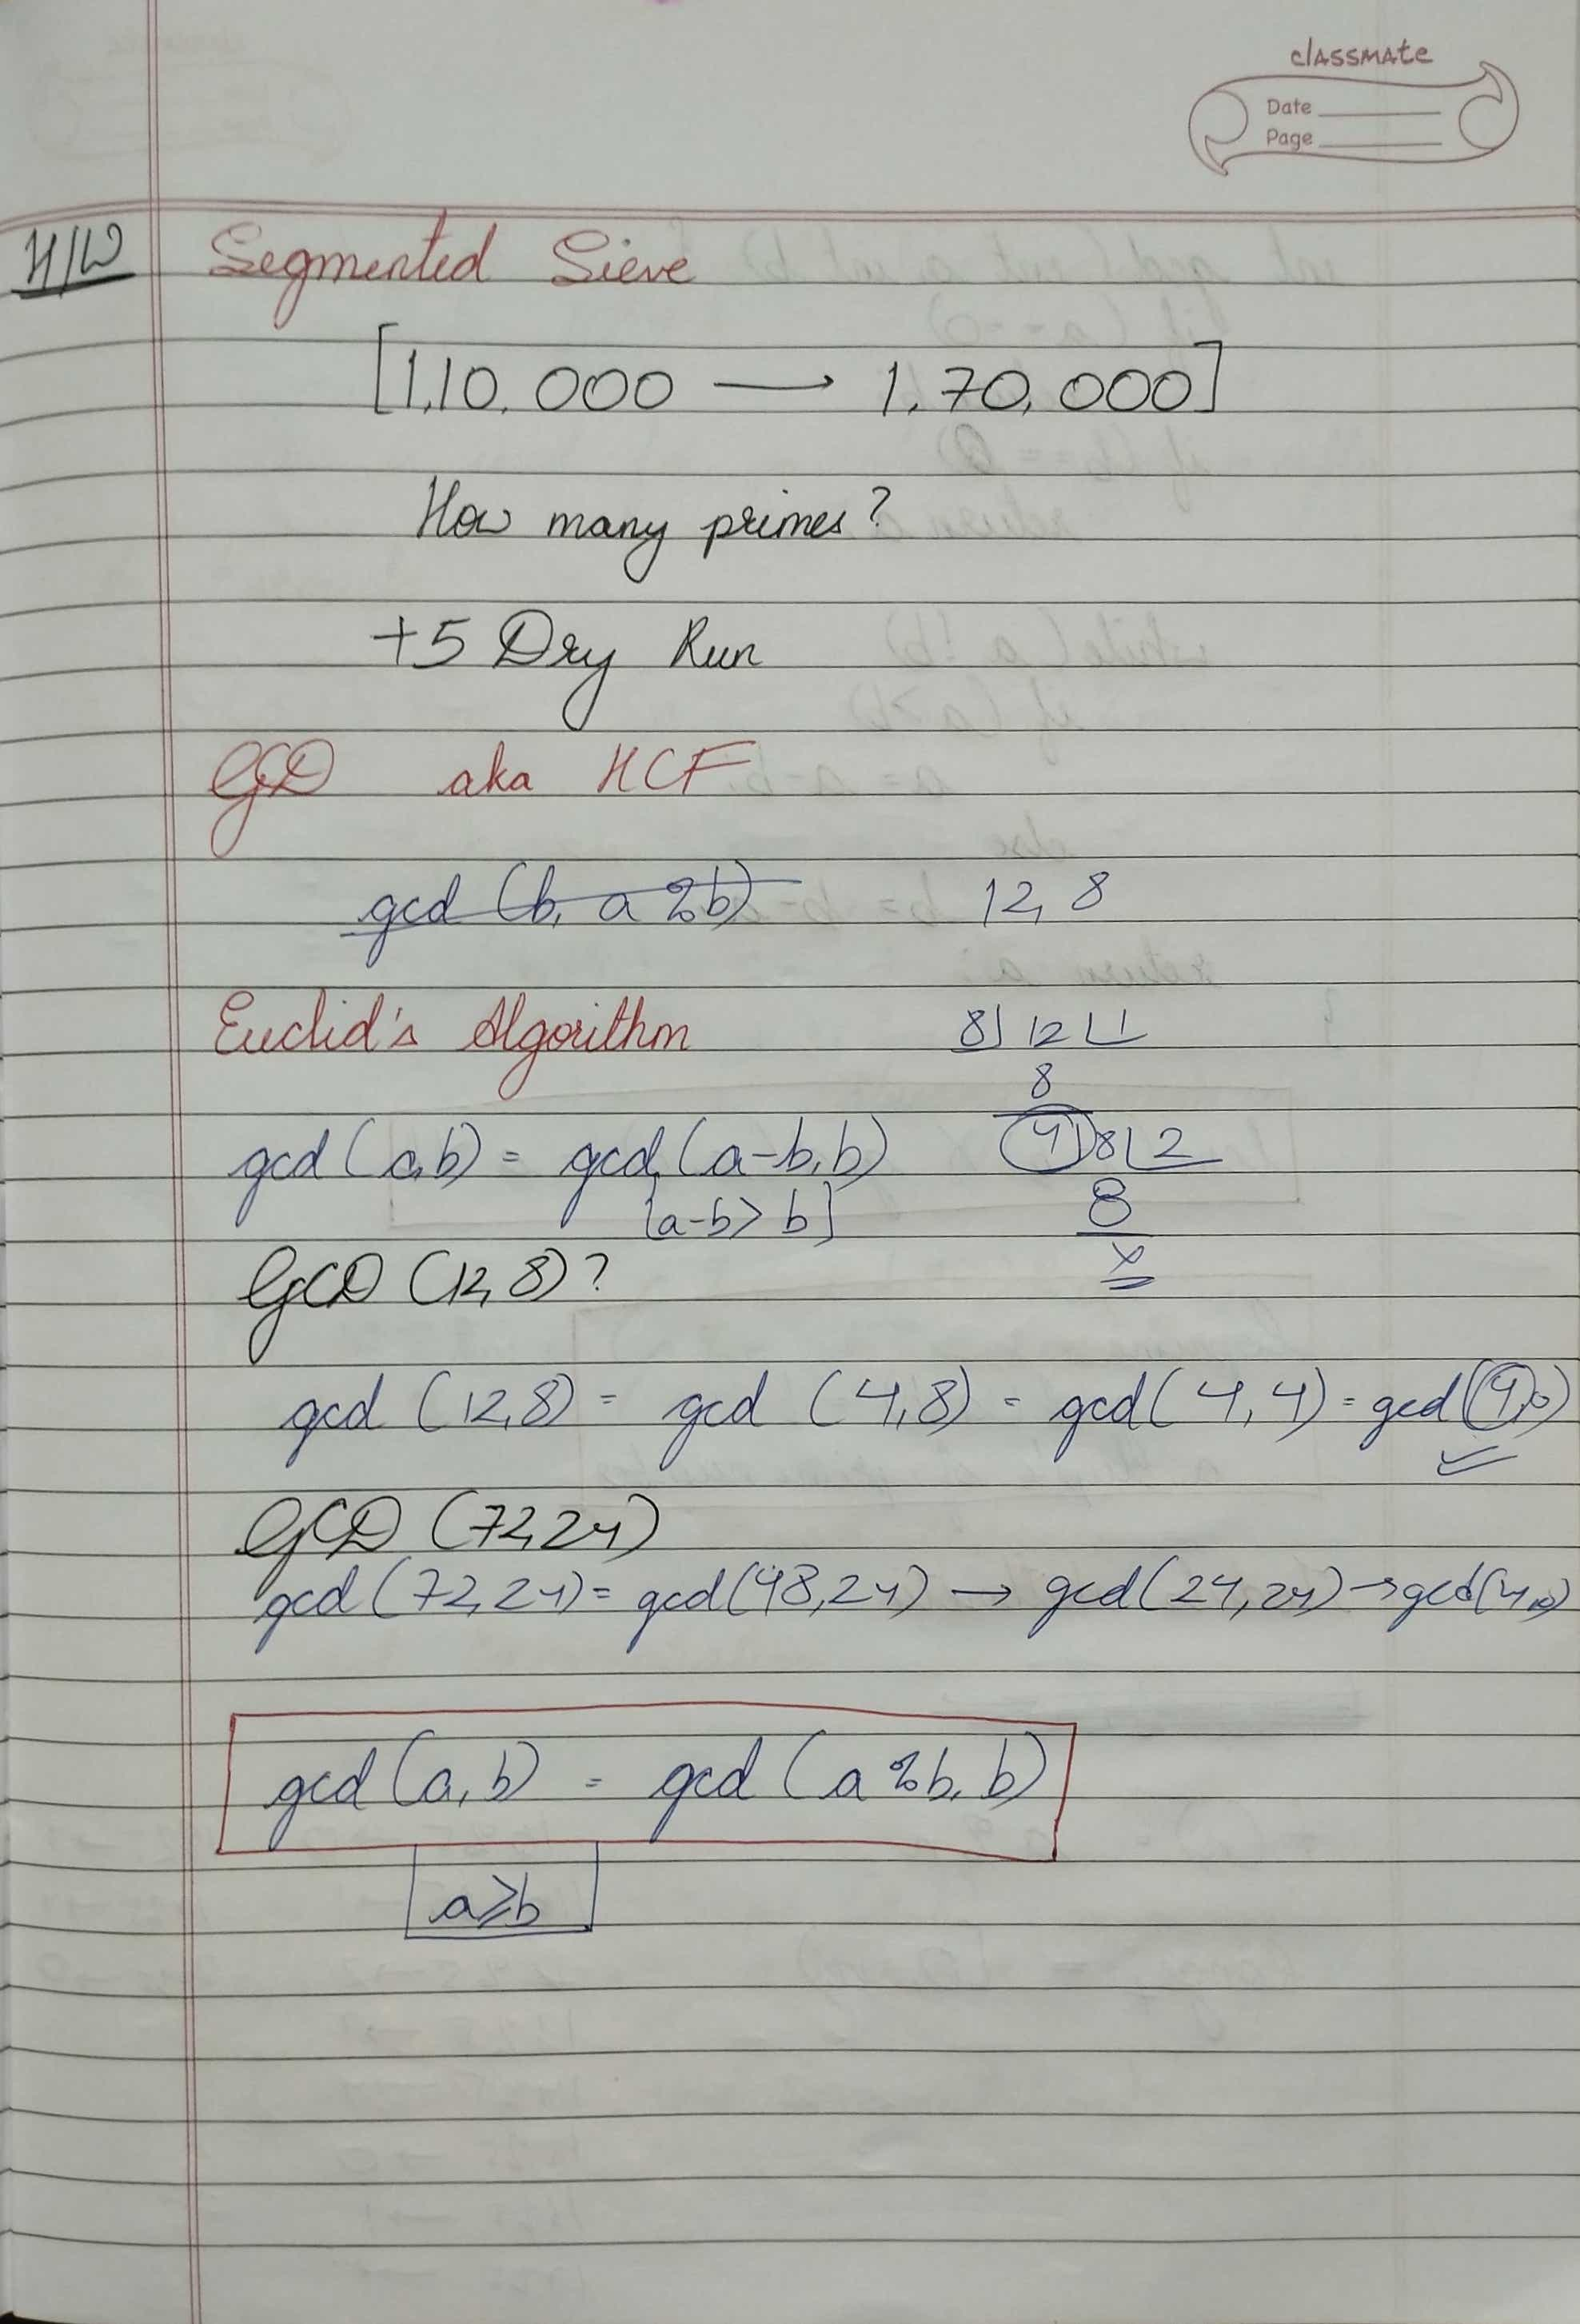 classmate
Date
Page
H/W Segmented Sieve
[1,10,000 → 1,70,000]
How many primes?
+5 Dry Run
GCD aka HCF
gcd (b, a % b) 12, 8
Euclid's Algorithm 8) 12 (1
8
gcd (a,b) = gcd (a-b, b) 4) 8 (2
[a-b > b] 8
GCD (12, 8)? x
gcd (12, 8) = gcd (4, 8) = gcd (4, 4) = gcd (4, 0)
GCD (72, 24)
gcd (72, 24) = gcd (48, 24) → gcd (24, 24) → gcd (4, 0)
gcd (a, b) = gcd (a % b, b)
a ≥ b